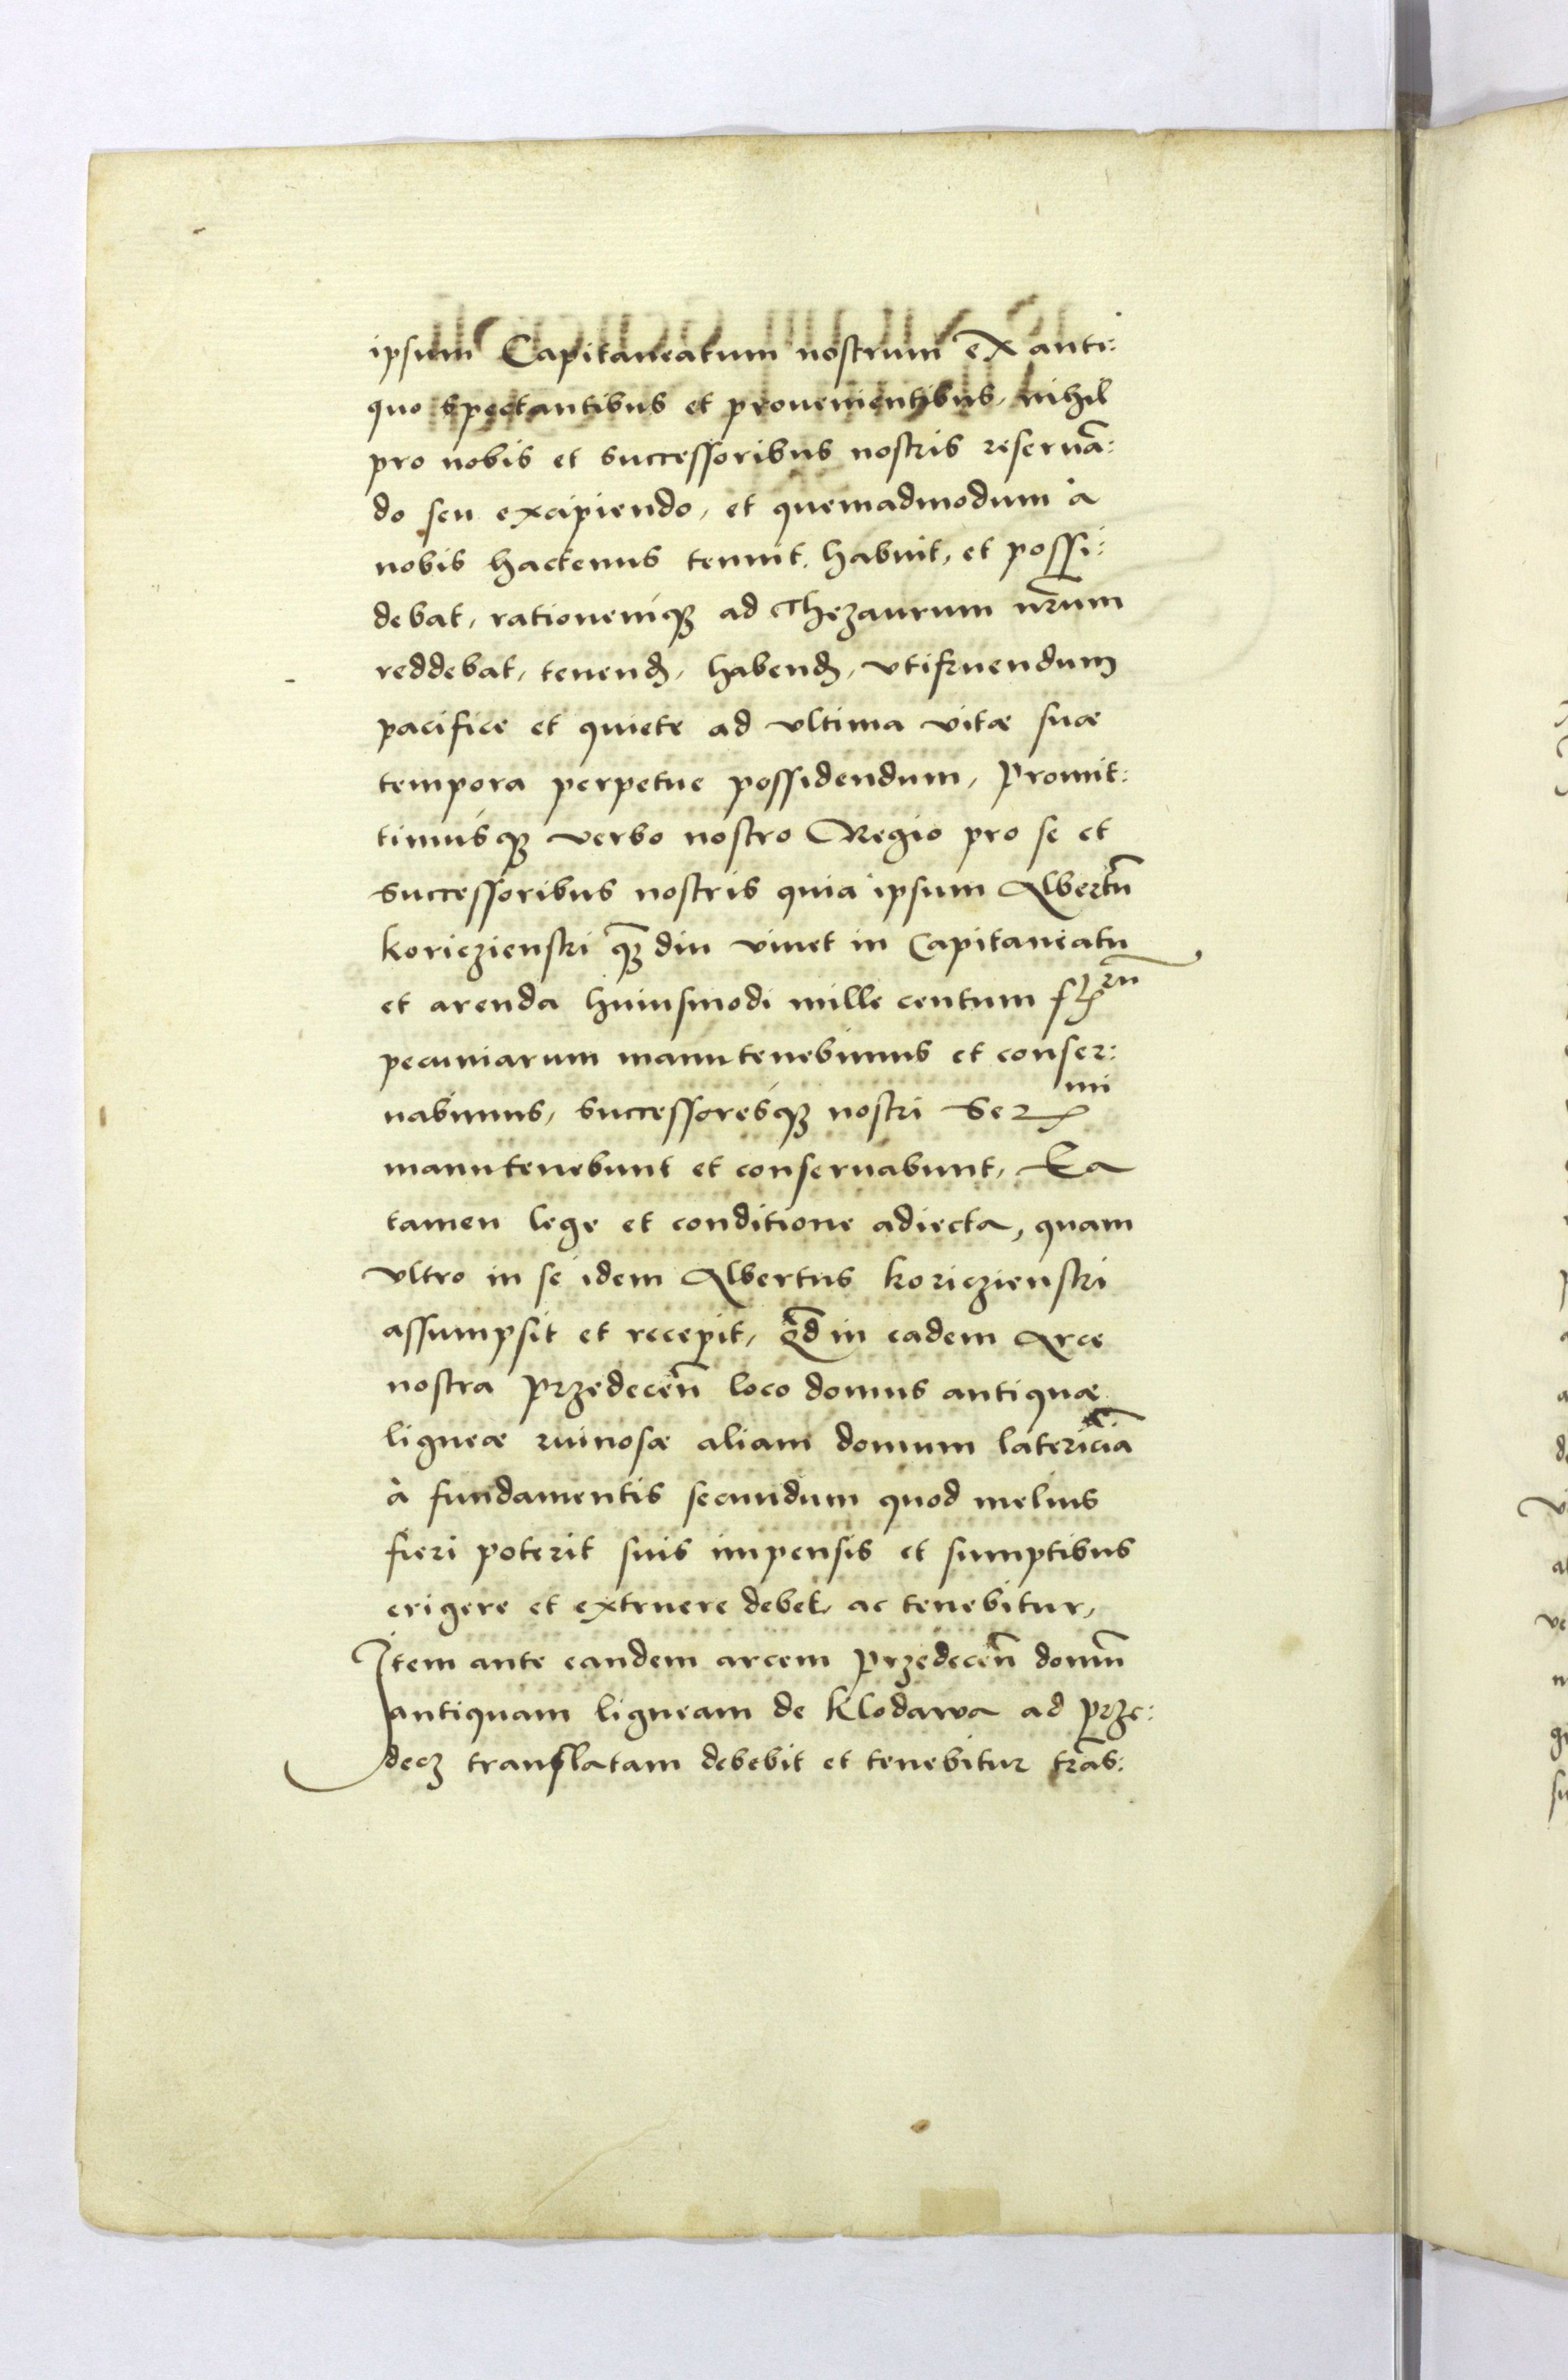 ipsum Capitaneatum nostrum ex anti:
quo spectantibus et prouenientibus, nihil
pro nobis et successoribus nostris reseruã:
do seu excipiendo, et quemadmodum à
nobis hactenus tenuit, habuit, et possi:
debat, rationemqȝ ad Thezaurum nr̃um
reddebat, tenend, habend, vtifruendum
pacifice et quiete ad vltima vitæ suæ
tempora perpetue possidendum, Promit:
timusqȝ verbo nostro Regio pro se et
successoribus nostris quia ipsum Albertũ
Koriczienski qȝ̃ diu viuet in Capitaneatu
et arenda huiusmodi mille centum flrũ
pecuniarum manutenebimus et conser:
uabimus, successoresqȝ nostri Sermi
manutenebunt et conseruabunt, Ea
tamen lege et conditione adiecta, quam
vltro in se idem Albertus Koriczienski
assumpsit et recepit, qd̃ in eadem Arce
nostra Przedeceñ loco domus antiquæ
ligneæ ruinosæ aliam domum latericiã
à fundamentis secundum quod melius
fieri poterit suis impensis et sumptibus
erigere et extruere debet ac tenebitur,
Item ante eandem arcem Przedeceñ domũ
antiquam ligneam de Klodawa ad Prze:
decz translatam debebit et tenebitur trãs: